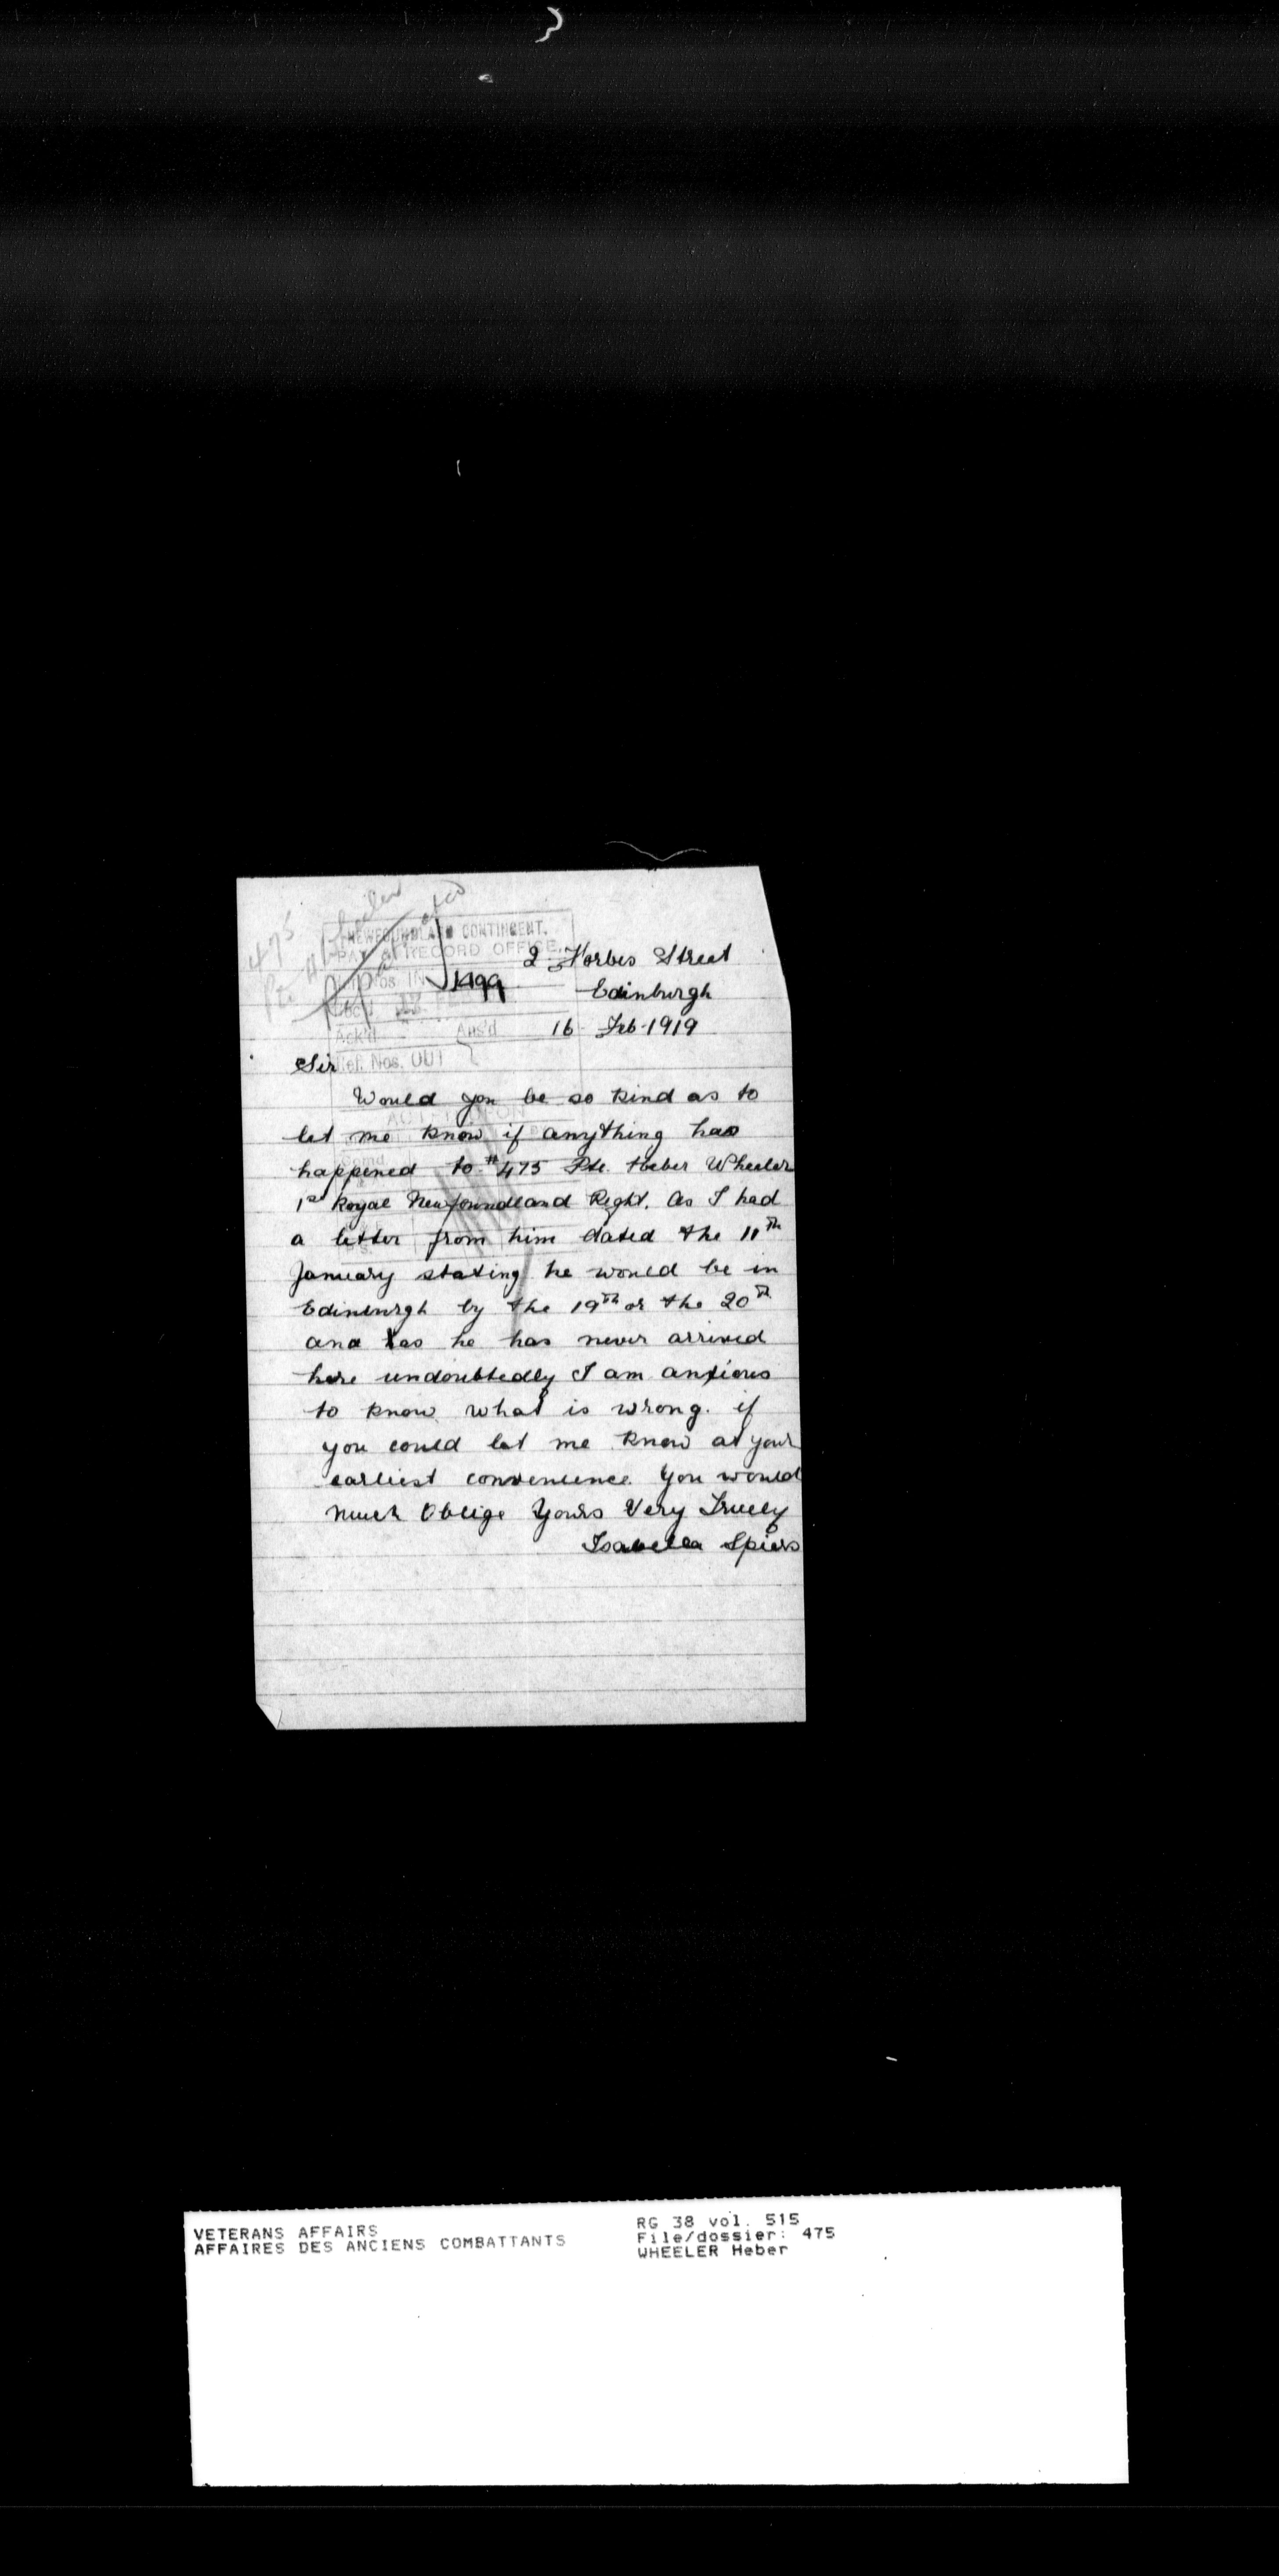 475
Pte H Wheeler
NEWFOUNDLAND CONTINGENT.
PAY & RECORD OFFICE.
Nos. IN 1499
Ack'd Ans'd
Ref. Nos. OUT
2 Forbes Street
Edinburgh
16 Feb 1919
Sir
Would you be so kind as to
let me know if anything has
happened to #475 Pte. Heber Wheeler
1st Royal Newfoundland Regt. As I had
a letter from him dated the 11th
January stating he would be in
Edinburgh by the 19th or the 20th
and as he has never arrived
here undoubtedly I am anxious
to know what is wrong. if
you could let me know at your
earliest convenience you would
much Oblige Yours Very Truely
Isabella Spiers
VETERANS AFFAIRS
AFFAIRES DES ANCIENS COMBATTANTS
RG 38 vol. 515
File/dossier: 475
WHEELER Heber